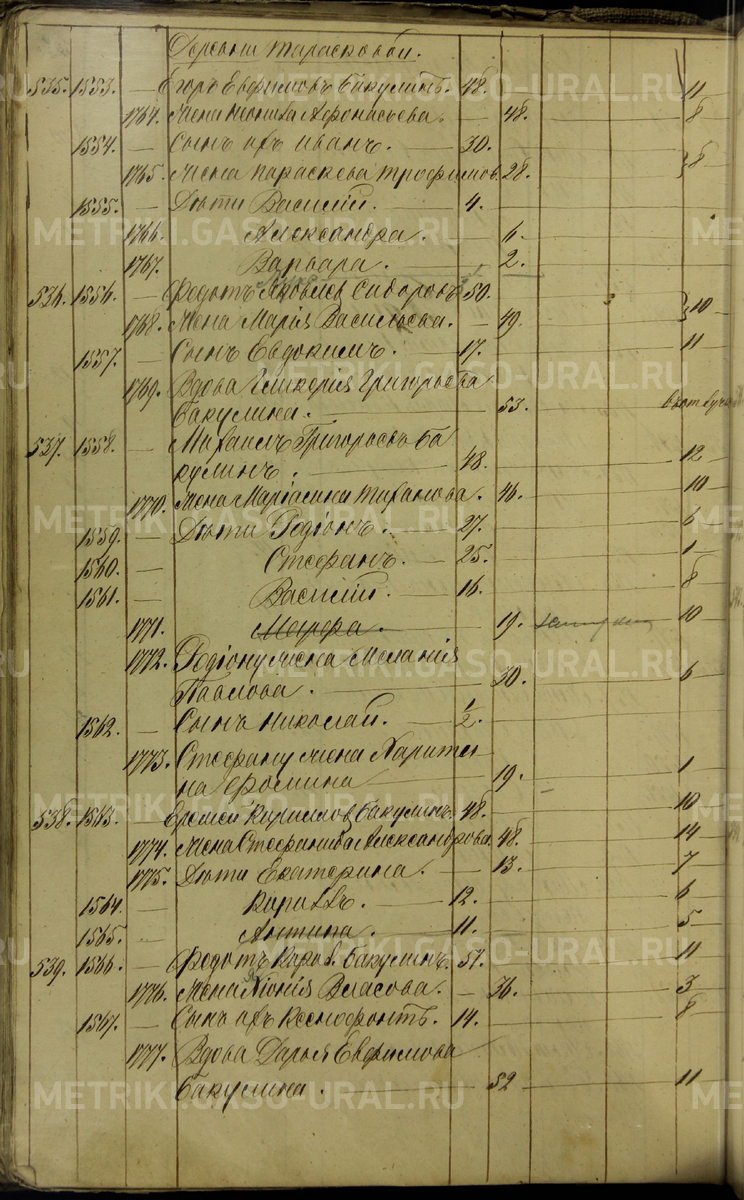 Деревни Тарасковой.
535. 1553. — Егоръ Евфимовъ Бакулинъ. 48. 11
1764. Жена Ѳіонива Афонасьева. — 48. 8
1554. — Сынъ ихъ Иванъ. — 30.
1765. Жена Параскева Трофимов. 28. 8
1555. — Дѣти Василій. — 4.
1766. Александра. — 6.
1767. Варвара. — 2.
536. 1556. — Федотъ Яковлев Сидоровъ 50.
1768. Жена Марія Васильева. — 49. 10
1557. — Сынъ Евдокимъ. — 17. 11
1769. Вдова Гликерія Григорьева
Бакулина. — 53.
537. 1558. — Михаилъ Григорьевъ Ба
кулинъ. — 48. 12
1770. Жена Маріамна Тиханова. 46. 10
1559. — Дѣти Родіонъ. — 27. 6
1560. — Стефанъ. — 25. 1
1561. — Василій. — 16. 8
1771. Марфа. — 19. 10
1772. Родіону жена Меланія
Павлова. — 30. 6
1562. — Сынъ Николай. — 1/2.
1773. Стефану жена Харити-
на Фомина — 19. 1
538. 1563. — Еремей Кириллов Бакулинъ. 48. 10
1774. Жена Стефанида Александрова. 48. 14
1775. Дѣти Екатерина. — 13. 7
1564. — Кириллъ. — 12. 6
1565. — Антипа. — 11. 5
539. 1566. — Федотъ Карпов. Бакулинъ. 57. 11
1776. Жена Хіонія Власова. — 36. 3
1567. — Сынъ ихъ Ксенофонтъ. 14. 8
1777. Вдова Дарья Евфимова
Бакулина. — 52 — 11
METRIKI.GASO-URAL.RU